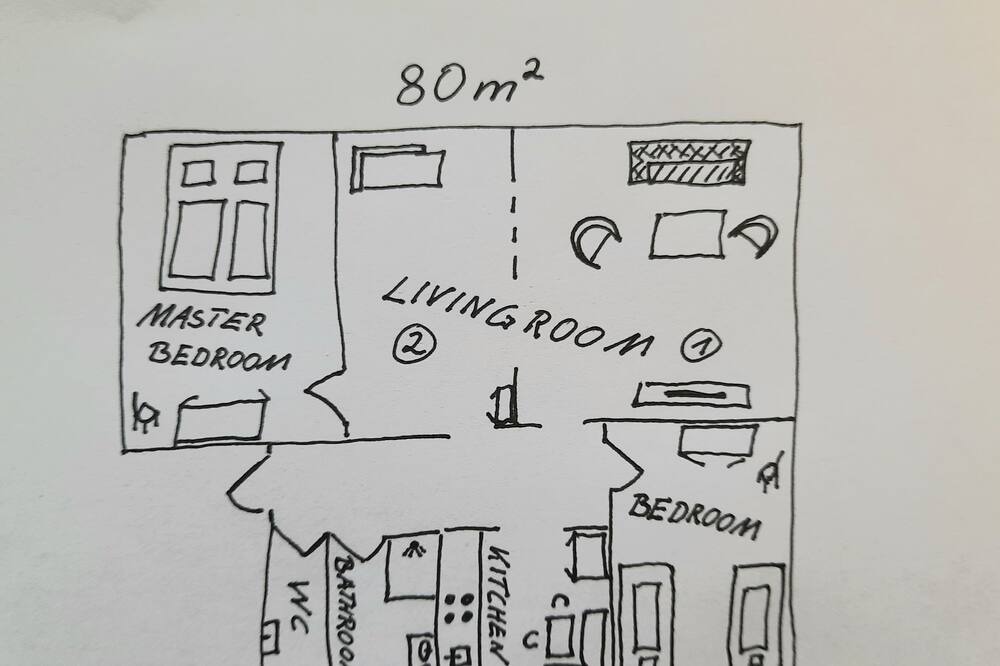 80m²
MASTER
BEDROOM
LIVINGROOM
② ①
BEDROOM
WC
BATHROO
KITCHEN